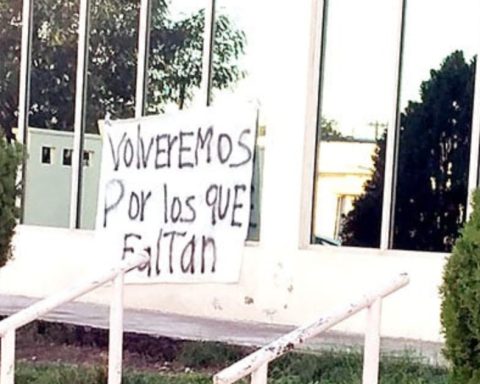 VolVEREMOS
Por los QUE
FalTan